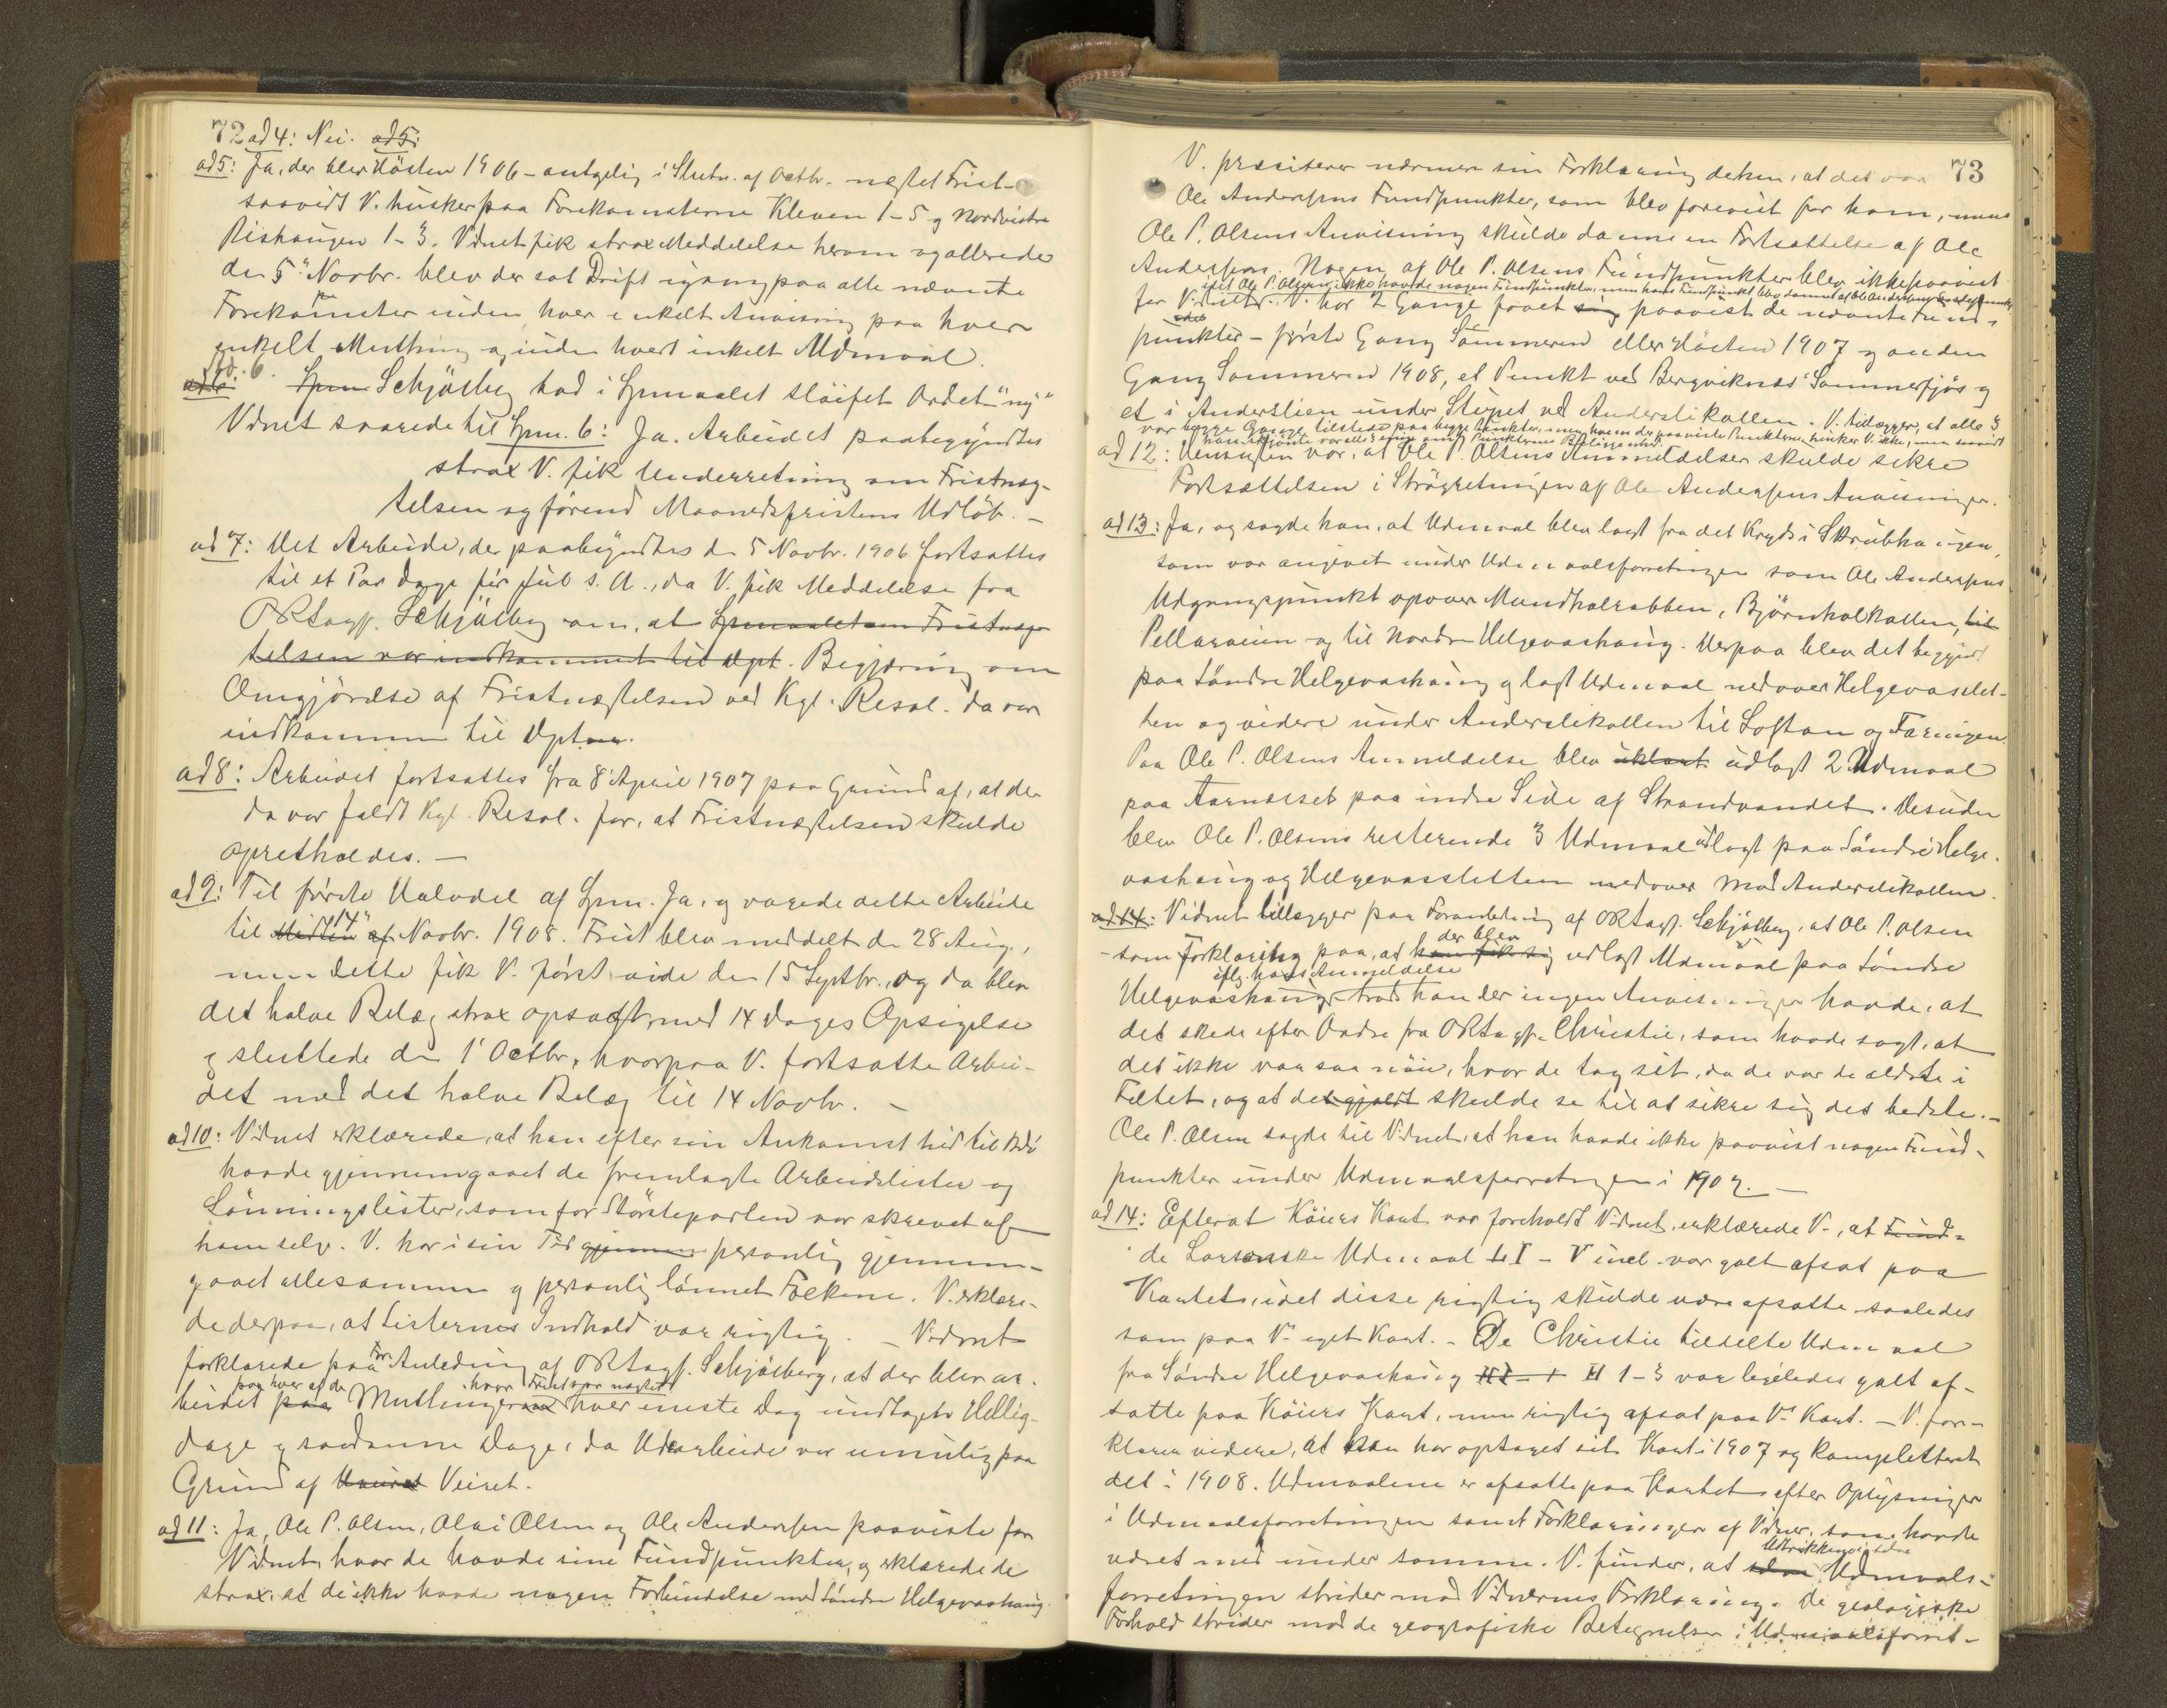 72 ad 4: Nei. ad 5:
ad 5: Ja, der blev Høsten 1906 – antagelig i Slutn. af Octbr. negtet Frist –
saavidt V. husker paa Forekomsterne Kleven 1–5 og Nordvestre
Rishaugen 1–3. Vidnet fik strax Meddelelse herom og allerede
den 5' Novbr. blev der sat Drift igang paa alle nævnte
Forekomster inden hver enkelt Anvisning paa hver
enkelt Muthing og inden hvert enkelt Udmaal.
ad 6: ad. 6. Spm Schjølberg had i Spmaalet sløifet Ordet "ny"
Vidnet svarede til Spm. 6: Ja. Arbeidet paabegyndtes
strax V. fik Underretning om Fristneg-
telsen og førend Maanedsfristens Udløb. –
ad 7: Det Arbeide, der paabegyndtes den 5 Novbr. 1906 fortsattes
til et Par Dage før Jul s. A., da V. fik Meddelelse fra
ORsagf. Schjølberg om, at Spmaalet om Fristneg-
telsen var indkommet til Dept. Begjæring om
Omgjørelse af Fristnegtelsen ved Kgl. Resol. da var
indkommen til Dptm.
ad 8: Arbeidet fortsattes fra 8' April 1907 paa Grund af, at der
da var faldt Kgl. Resol. for, at Fristnegtelsen skulde
opretholdes. –
ad 9: Til første Halvdel af Spm. Ja, og varede dette Arbeide
til Midten af 14" Novbr. 1908. Frist blev meddelt den 28 Aug.,
men dette fik V. først vide den 15 Septbr., og da blev
det halve Belæg strax opsagt med 14 Dages Opsigelse
og sluttede den 1' Octbr., hvorpaa V. fortsatte Arbei-
det med det halve Belæg til 14 Novbr. –
ad 10: Vidnet erklærede, at han efter sin Ankomst hid til Bdø
havde gjennemgaaet de fremlagte Arbeidslister og
Lønningslister, som for Størsteparten var skrevet af
ham selv. V. har i sin Tid gjennem personlig gjennem-
gaaet allesammen og personlig lønnet Folkene. V. erklære-
de derpaa, at Listernes Indhold var rigtig. – Vidnet
forklarede paa For Anledning af ORsagf. Schjølberg, at der blev ar-
beidet paa paa hver af de Muthinger hvor Frist var negtet hver eneste Dag undtagen Hellig-
dage og saadanne Dage, da Udearbeide var umulig paa
Grund af Veiret.
ad 11: Ja, Ole P. Olsen, Olai Olsen og Ole Andersen paaviste for
Vidnet, hvor de havde sine Fundpunkter, og erklærede de
strax, at de ikke havde nogen Forbindelse med Søndre Helgevashaug.
73
V. præsiterer nærmere sin Forklaring derhen, at det var
Ole Andersens Fundpunkter, som blev forevist for ham, mens
Ole P. Olsens Anvisning skulde danne en Fortsættelse af Ole
Andersens. Nogen af Ole P. Olsens Fundpunkter blev ikke paavist
idet Ole P. Olsen ikke havde nogen Fundpunkter, men hans Fundpunkt blev dannet af Ole Andersens
for Vidnet. V. har 2 Gange faaet sig paavist de nævnte Fund-
punkter – første Gang Sommeren eller Høsten 1907 og anden
Gang Sommeren 1908, et Punkt ved Bergviknes Sommerfjøs og
et i Anderslien under Stupet ved Anderslikollen. V. tillægger, at alle 3
var begge Gange tilstede paa begge Punkter, men hvem der paaviste Punkterne husker V. ikke, men saavidt
han skjønte var alle enige om Punkternes Beliggenhed.
ad 12: Hensigten var, at Ole P. Olsens Anmeldelser skulde sikre
Fortsættelsen i Strøgretningen af Ole Andersens Anvisninger.
ad 13: Ja, og sagde han, at Udmaal blev lagt fra det Kryds i Skrubhaugen,
som var angivet under Udmaalsforretningen som Ole Andersens
Udgangspunkt opover Mundhalrabben, Bjørnholkollen, til
og til Nordre Helgevashaug. Herpaa blev det begyndt
paa Søndre Helgevashaug og lagt Udmaal nedover Helgevasslet-
ten og videre under Anderslikollen til Loftan og Faringen.
Paa Ole P. Olsens Anmeldelse blev udlagt 2 Udmaal
paa Aarneset paa indre Side af Strandvandet. Desuden
blev Ole P. Olsens resterende 3 Udmaal udlagt paa Søndre Helge-
vashaug og Helgevassletten nedover mod Anderslikollen.
ad 14: Vidnet tillægger paa Foranledning af ORsagf. Schjølberg, at Ole P. Olsen
– som Forklaring paa, at han fik sig der blev udlagt Udmaal paa Søndre
Helgevashaug iflg. hans Anmeldelse trods han der ingen Anvisninger havde, at
det skede efter Ordre fra ORsagf. Christie, som havde sagt, at
det ikke var saa nøie, hvor de tog sit, da de var de ældste i
Feltet, og at det gjaldt skulde se til at sikre sig det bedste. –
Ole P. Olsen sagde til Vidnet, at han havde ikke paavist nogen Fund-
punkter under Udmaalsforretningen i 1902. –
ad 14: Efterat Køiers Kart var foreholdt Vidnet, erklærede V., at Fund-
de Larsenske Udmaal L I – V incl. var galt afsat paa
Kartet, idet disse rigtig skulde være afsatte saaledes
som paa V's eget Kart. – De Christie tildelte Udmaal
fra Søndre Helgevashaug II 1–3 var ligeledes galt af-
satte paa Køiers Kart, men rigtig afsat paa V's Kart. – V. for-
klarer videre, at han har optaget sit Kart i 1907 og kompletteret
det i 1908. Udmaalene er afsatte paa Kartet efter Oplysninger
i Udmaalsforretningen samt Forklaringer af Vidner, som havde
været med under samme. V. finder, at Udstrikkningen i Udmaals-
forretningen strider mod Vidnernes Forklaring. De geologiske
Forhold strider mod de geografiske Betegnelser i Udmaalsforret-